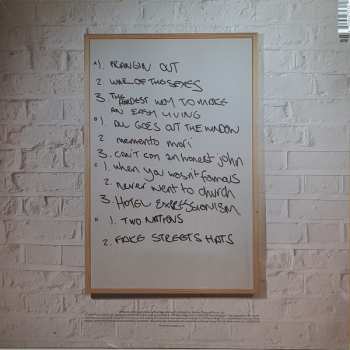 1. PRANGIN OUT
2. WAR OF THE SEXES
3. THE HARDEST WAY TO MAKE
AN EASY LIVING
1. ALL GOES OUT THE WINDOW
2 memento mori
3. can't con an honest john
1. when you wasn't famous
2. never went to church
3 HOTEL EXPRESSIONISM
1. TWO NATIONS
2. FAKE STREETS HATS